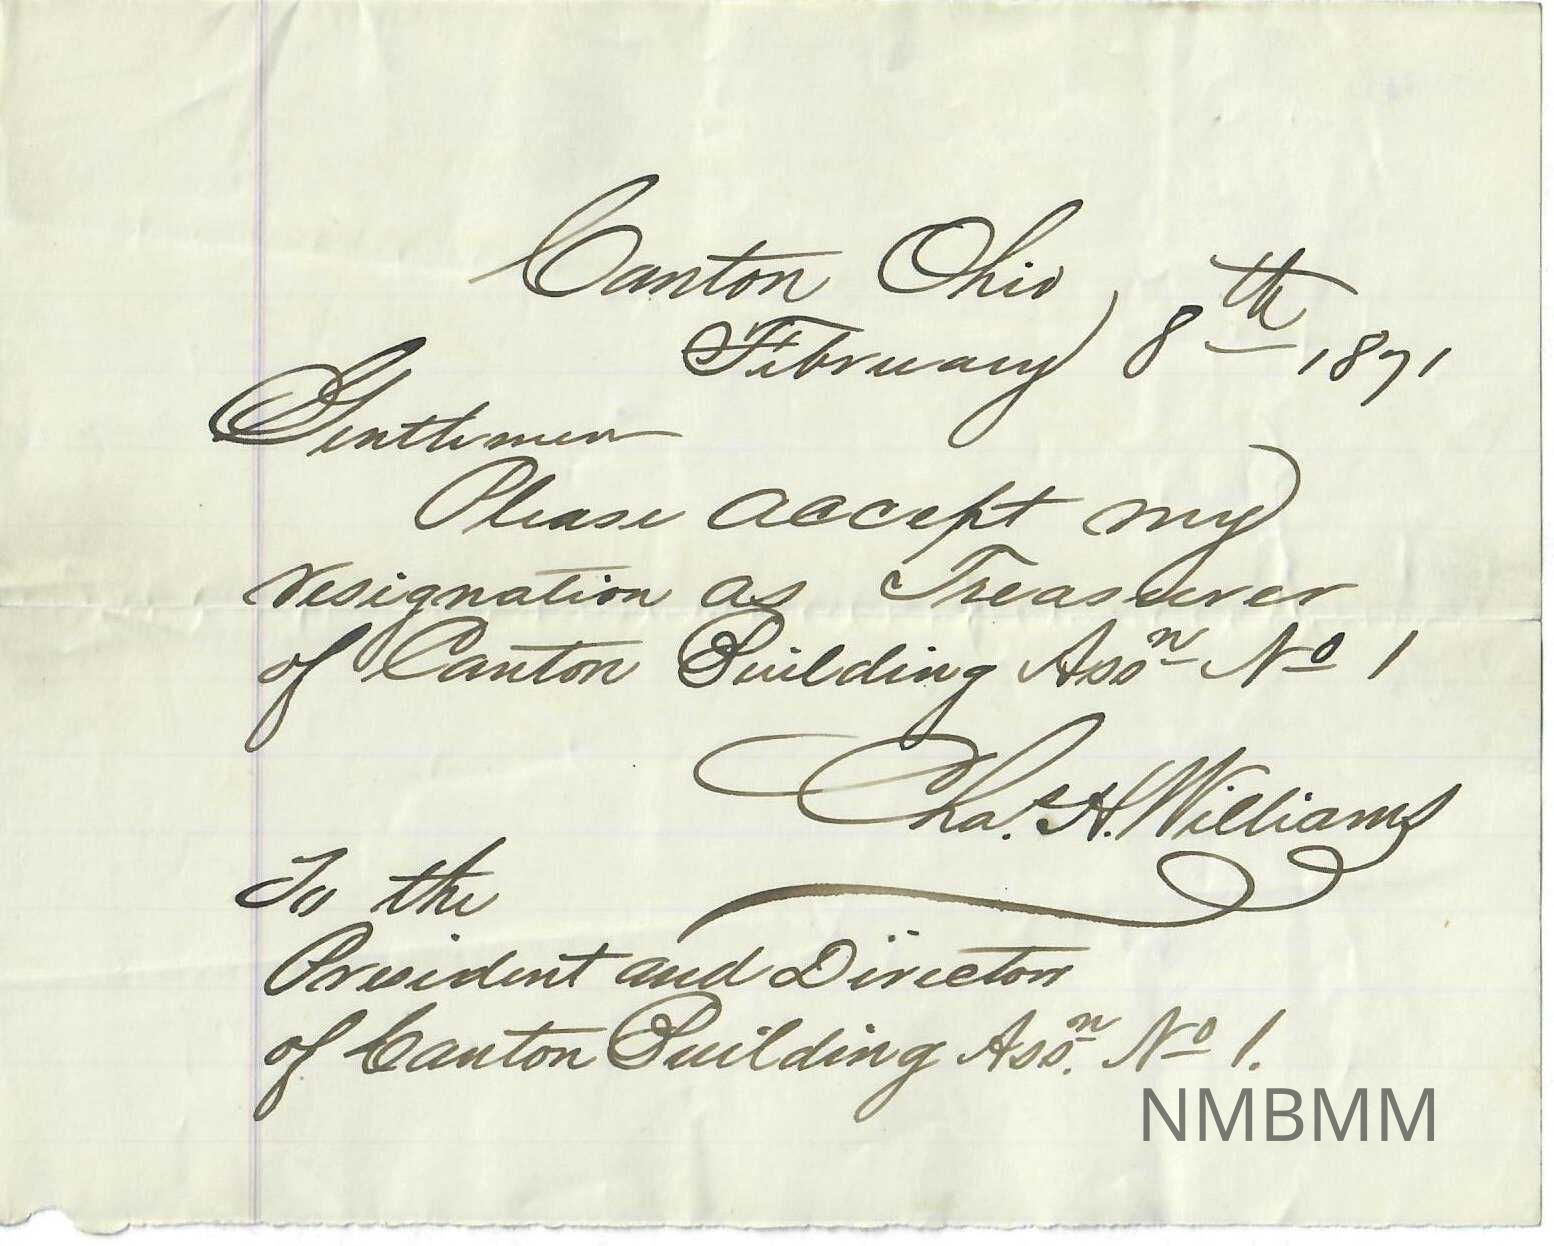 Canton Ohio
February 8th 1871
Gentlemen
Please accept my
resignation as Treasurer
of Canton Building Assn No 1
Chas. H. Williams
To the
President and Directors
of Canton Building Assn. No 1.
NMBMM